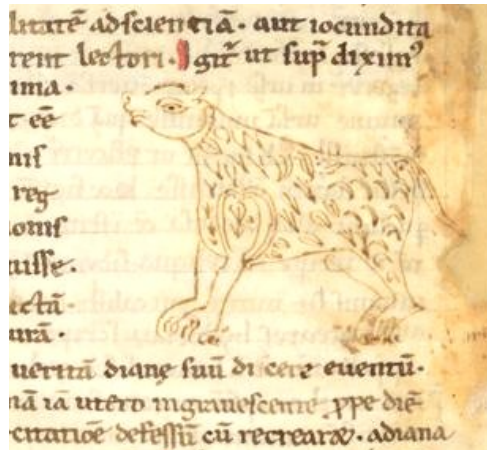 litatē ad scientiā· aut iocundita
rent lectori· Igit̄ ut sup̄ dixim᷒
ima·
t eē
nis
reg-
omis
uisse·
ictā
urā·
ueritā diane suū dicere euentū·
nā iā utero ingrauescente ꝓpe diē
citatiōe defessū cū recrearat· a diana